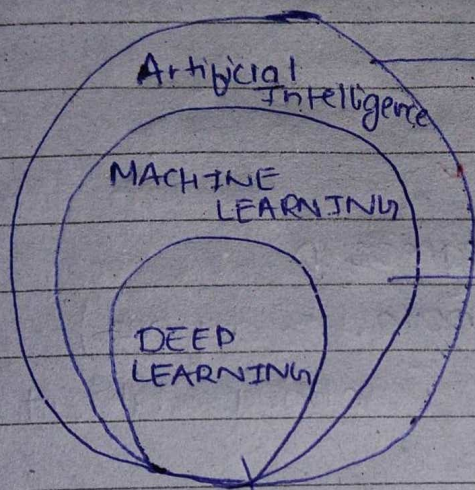 Artificial
Intelligence
MACHINE
LEARNING
DEEP
LEARNING